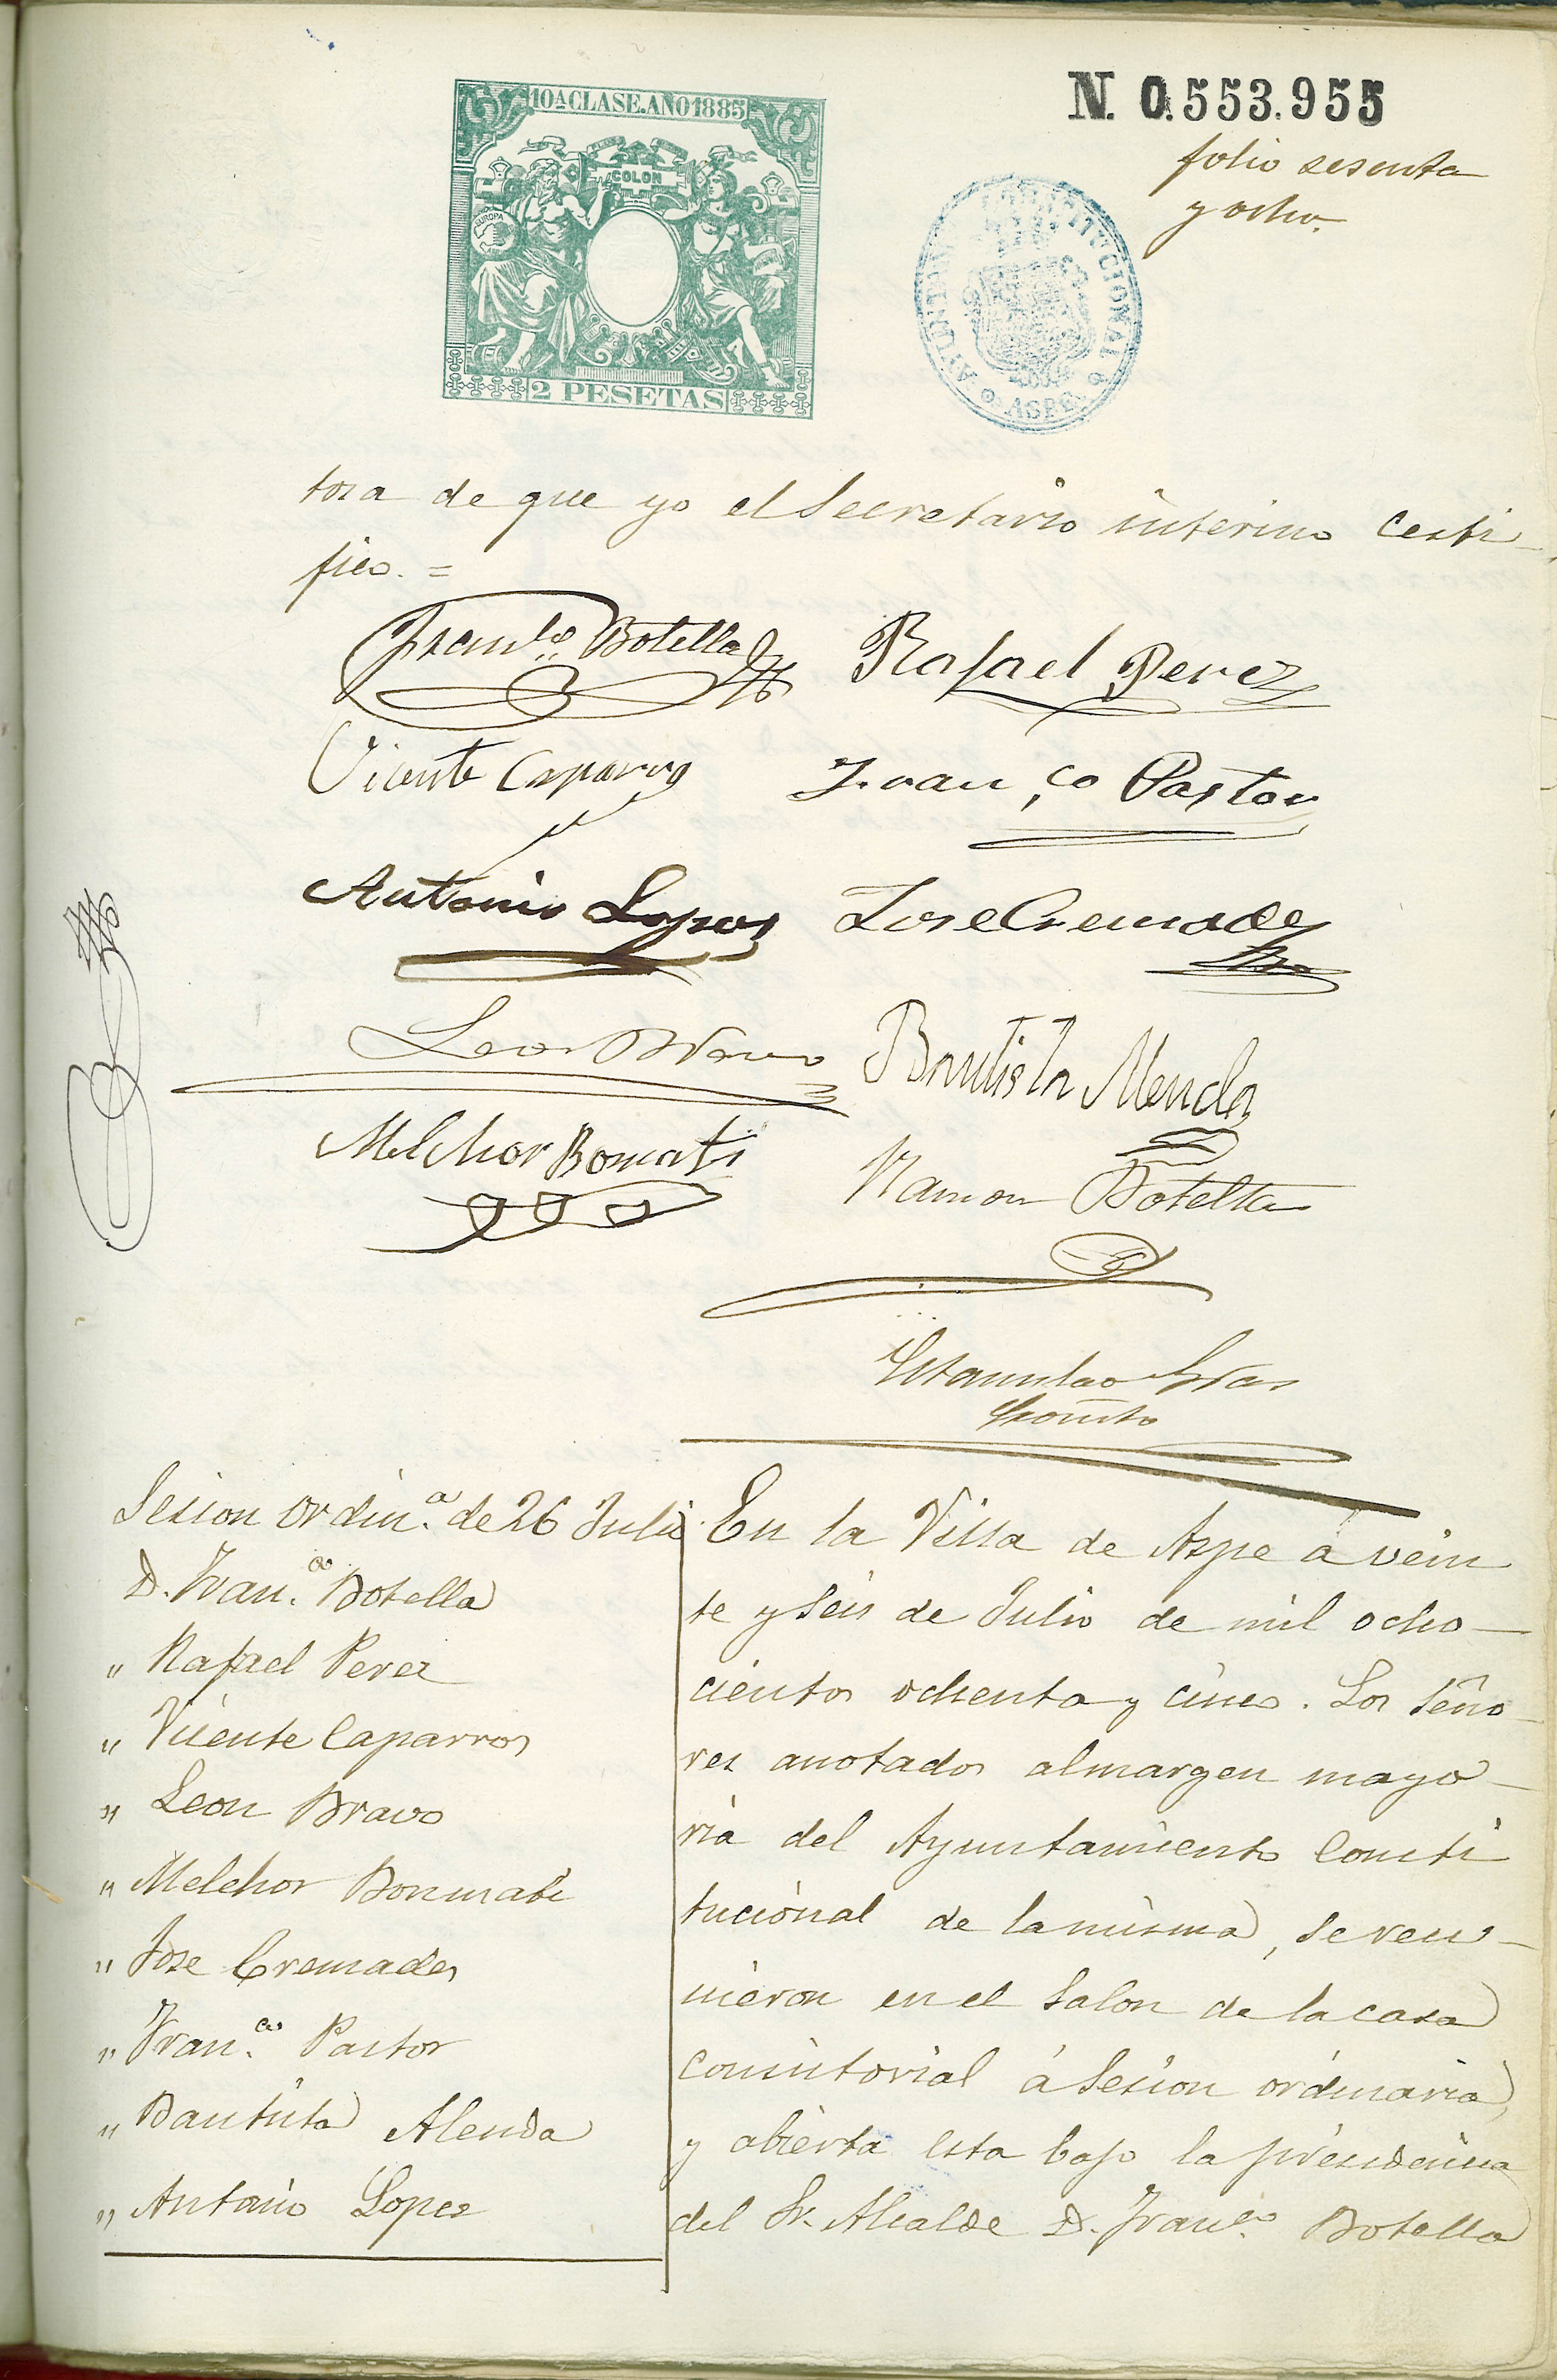 10ª CLASE. AÑO 1885
COLON
EUROPA
2 PESETAS
N. 0.553.955
folio sesenta
y ocho.
AYUNTAMIENTO CONSTITUCIONAL ASPE
tora de que yo el Secretario interino certi-
fico. =
Franco. Botella
Rafael Perez
Vicente Caparros
Franco Pastor
Antonio Lopez
Jose Cremades
Leon Bravo
Bautista Alenda
Melchor Bonmati
Ramon Botella
Estanislao
Sesion ordin.a de 26 Julio.
D. Fran.co Botella
" Rafael Perez
" Vicente Caparros
" Leon Bravo
" Melchor Bonmati
" Jose Cremades
" Fran.co Pastor
" Bautista Alenda
" Antonio Lopez
En la Villa de Aspe á vein
te y seis de Julio de mil ocho-
cientos ochenta y cinco. Los Seño-
res anotados al margen mayo-
ria del Ayuntamiento Consti
tucional de la misma, se reu-
nieron en el Salon de la casa
consistorial á Sesion ordinaria,
y abierta esta bajo la presidencia
del Sr. Alcalde D. Franco. Botella